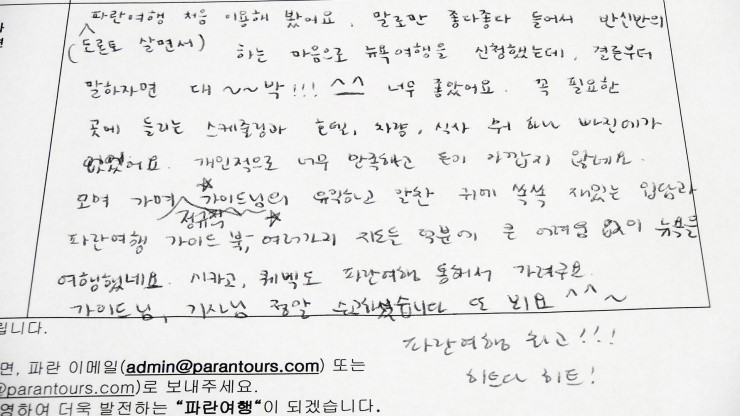 파란여행 처음 이용해 봤어요. 말로만 좋다좋다 들어서 반신반의
(토론토 살면서) 하는 마음으로 뉴욕여행을 신청했는데, 결론부터
말하자면 대~~박!!! ^^ 너무 좋았어요. 꼭 필요한
곳에 들리는 스케쥴링과 호텔, 차량, 식사 뭐 하나 빠진데가
없었어요. 개인적으로 너무 만족하고 돈이 아깝지 않네요.
모여 가며 ☆가이드님의 유익하고 알찬 귀에 쏙쏙 재밌는 입담과
정규직☆
파란여행 가이드 북, 여러가지 지도든 덕분에 큰 어려움 없이 뉴욕을
여행했네요. 시카고, 퀘벡도 파란여행 통해서 가려구요.
가이드님, 기사님 정말 수고하셨습니다. 또 뵈요 ^^~
파란여행 최고!!!
히트다 히트!
립니다.
면, 파란 이메일(admin@parantours.com) 또는
@parantours.com)로 보내주세요.
영하여 더욱 발전하는 "파란여행"이 되겠습니다.